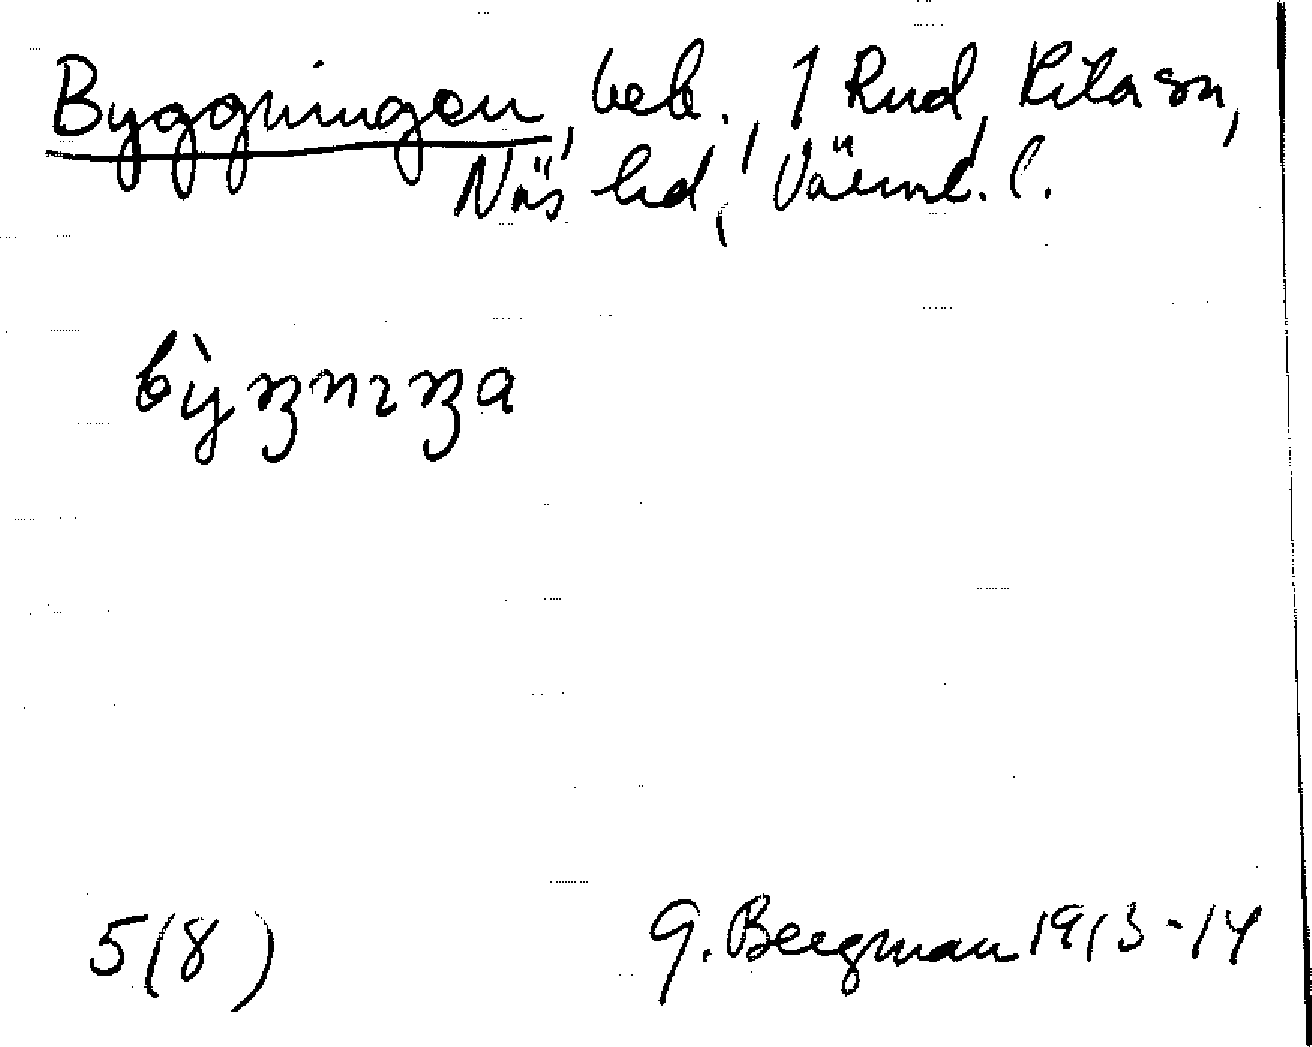 Byggningen, beb., 1 Rud, Kila sn,
Näs hd, Värml. l.
5(8)
G. Bergman 1913-14